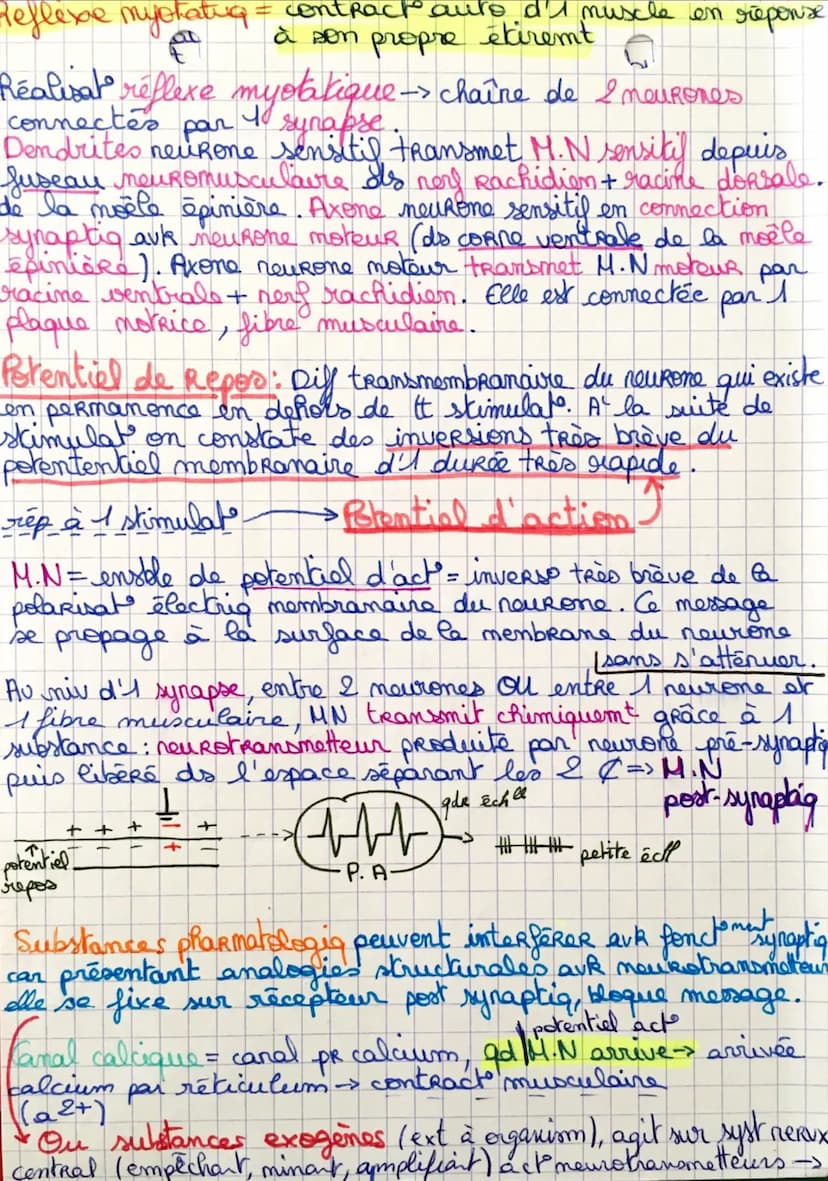 Réflexe myotatiq = contract° auto d'1 muscle en réponse
à son propre étiremt
Réalisat° réflexe myotatique → chaîne de 2 neurones
connectés par 1 synapse.
Dendrites neurone sensitif transmet M.N sensitif depuis
fuseau neuromusculaire ds nerf rachidien + racine dorsale.
de la moële épinière. Axone neurone sensitif en connection
synaptiq avk neurone moteur (ds corne ventrale de la moële
épinière). Axone neurone moteur transmet M.N moteur par
racine ventrale + nerf rachidien. Elle est connectée par 1
plaque motrice, fibre musculaire.
Potentiel de Repos : Diff transmembranaire du neurone qui existe
en permanence en dehors de tt stimulat°. A la suite de
stimulat° on constate des inversions très brève du
potententiel membranaire d'1 durée très rapide.
rép à 1 stimulat° → Potentiel d'action
M.N = ensble de potentiel d'act° = inverse très brève de la
polarisat° électriq membranaire du neurone. Ce message
se propage à la surface de la membrane du neurone
sans s'atténuer.
Au niv d'1 synapse, entre 2 neurones OU entre 1 neurone et
1 fibre musculaire, MN transmit chimiquemt grâce à 1
substance : neurotransmetteur produite par neurone pré-synaptiq
puis libéré ds l'espace séparant les 2 ₵ => M.N
post-synaptiq
gde échll
+ + + − +
− − − + −
potentiel
repos
P. A
petite écll
Substances pharmatologiq peuvent interférer avk fonct°ment synaptiq
car présentant analogies structurales avk neurotransmetteur
elle se fixe sur récepteur post synaptiq, bloque message.
potentiel act°
Canal calcique = canal pr calcium, qd M.N arrive → arrivée
calcium par réticulum → contract° musculaire
(a 2+)
Ou substances exogènes (ext à organism), agit sur syst nerveux
central (empêchant, minant, amplifiant) act° neurotransmetteurs →